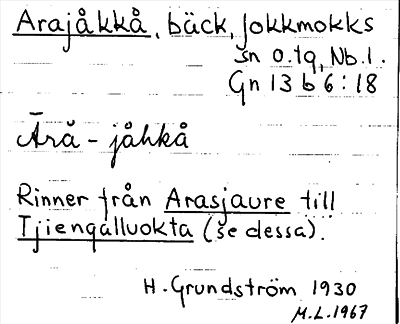 Arajåkkå, bäck, Jokkmokks
sn o. tq, Nb. l.
Gn 13 b 6:18
Ārå - jåhkå
Rinner från Arasjaure till
Tjiengalluokta (se dessa).
H. Grundström 1930
M.L. 1967